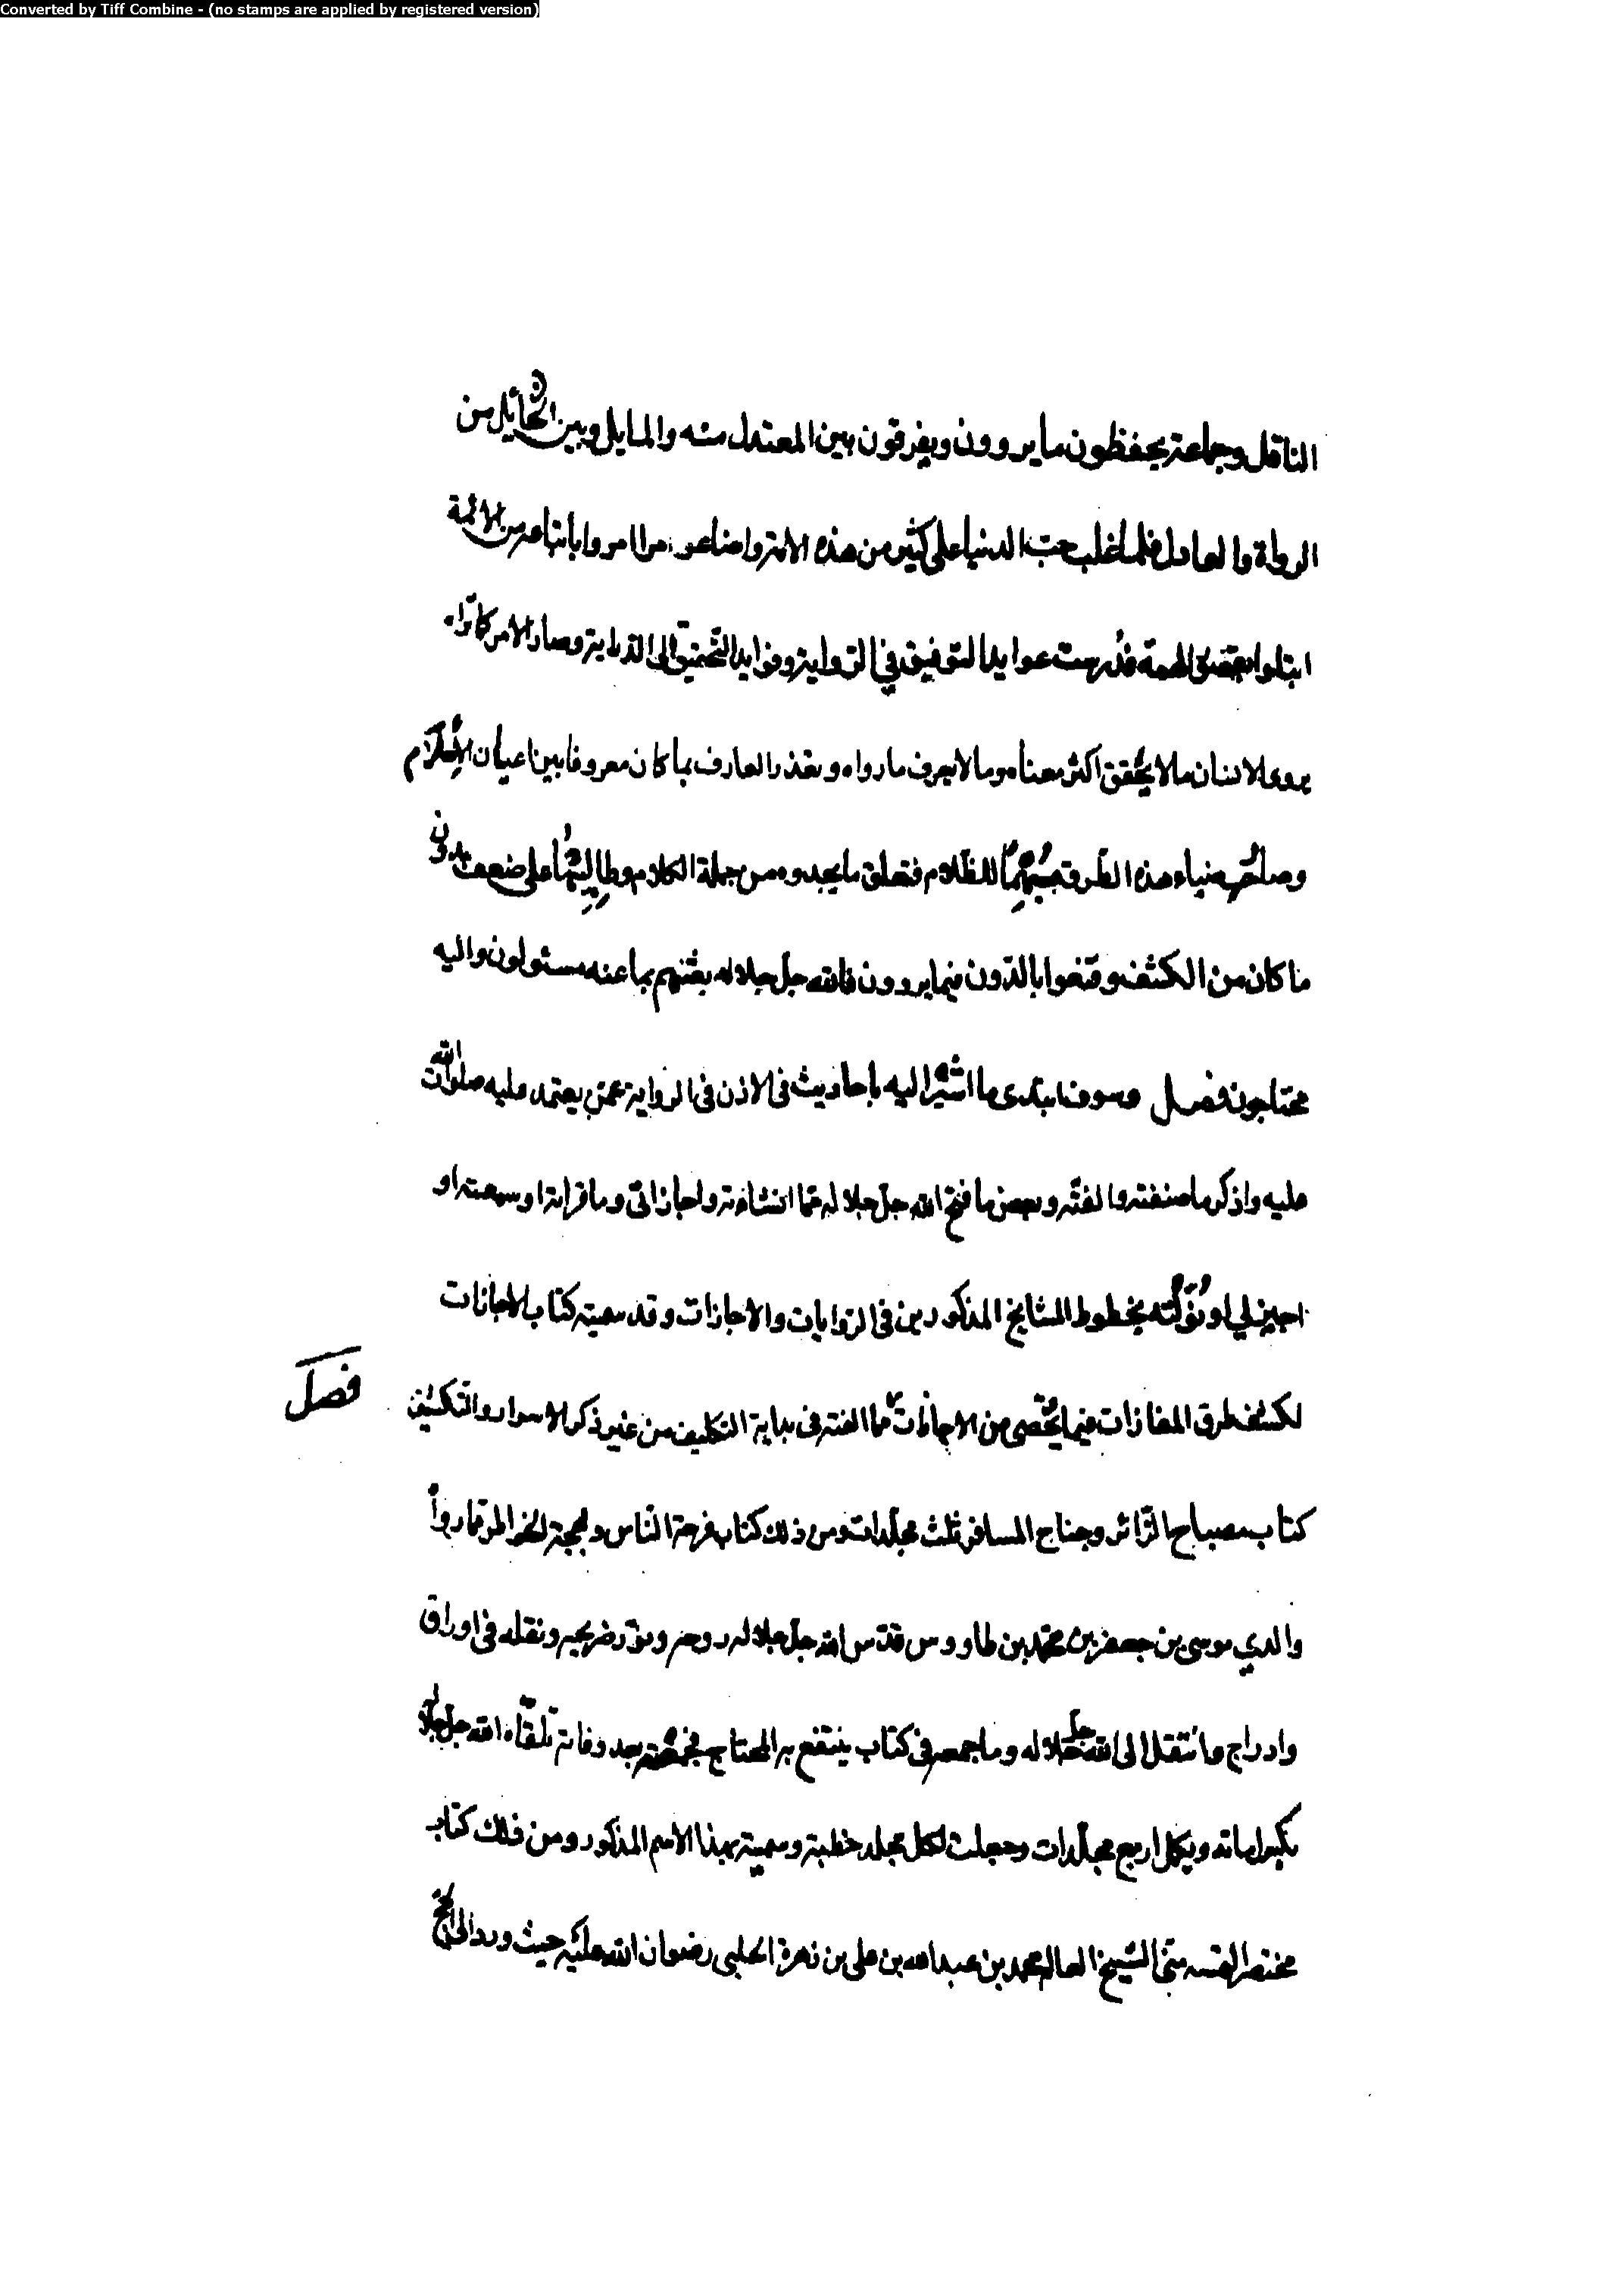 Converted by Tiff Combine - (no stamps are applied by registered version)
الناقل وجماعة يحفظون ما يروون ويفرقون بين المعتدل منه والمايل وبين الحائل من
الرواة والعادل فلما غلب حب الدنيا على كثير من هذه الامة واضاعوا من امروا باتباعه من الائمة
ابتلوا الهمة عوايد التوفيق في الرواية وفوايد التحقيق الى الدراية وصار الامر كما تراه
يروى الانسان ما لا يحقق اكثر معناه وما لا يعرف ما رواه وتعذر العارف بما كان معروفا بين اعيان الاسلام
وصار ضياء هذه الطرق للظلام فتعلق ما يجدوه من جملة الكلام على ضعف بدون
ما كان من الكشف وقنعوا بالدون فيما يروون فالله جل جلاله بما عنه مسئولون واليه
محتاجون فصل وسوف ابتدى ما اشير اليه باحاديث في الاذن في الرواية عمن يعتمد عليه صلوات الله
عليه واذكر ما صنفته والفته وبعض ما فتح الله جل جلاله مما انشاءته واجازاتي وما قراته او سمعته او
اجيز لي او بخطوط المشايخ المذكورين في الروايات والاجازات وقد سميته كتاب الاجازات
لكشف طرق المفازات فيما يختصى من الاجازات مما الفته في بداية التكليف من غير ذكر الاسرار والتكشيف
فصل
كتاب مصباح الزائر وجناح المسافر ثلث مجلدات ومن ذلك كتاب فرحة الناس وبهجة الخواطر مما رواه
والدي موسى بن جعفر بن محمد بن طاووس قدس الله جل جلاله روحه ونور ضريحه ونقله في اوراق
وادراج وانتقل الى الله جل جلاله وما جمعه في كتاب ينتفع به المحتاج فجمعته بعد وفاته تلقاه الله جل جلاله
ويكمل اربع مجلدات وجعلت لكل مجلد خطبة وسميته بهذا الاسم المذكور ومن ذلك كتاب
مختصر الشيخ العالم محمد بن عبد الله بن على بن زهرة الحلبى رضوان الله عليه حيث ورد الى الحج